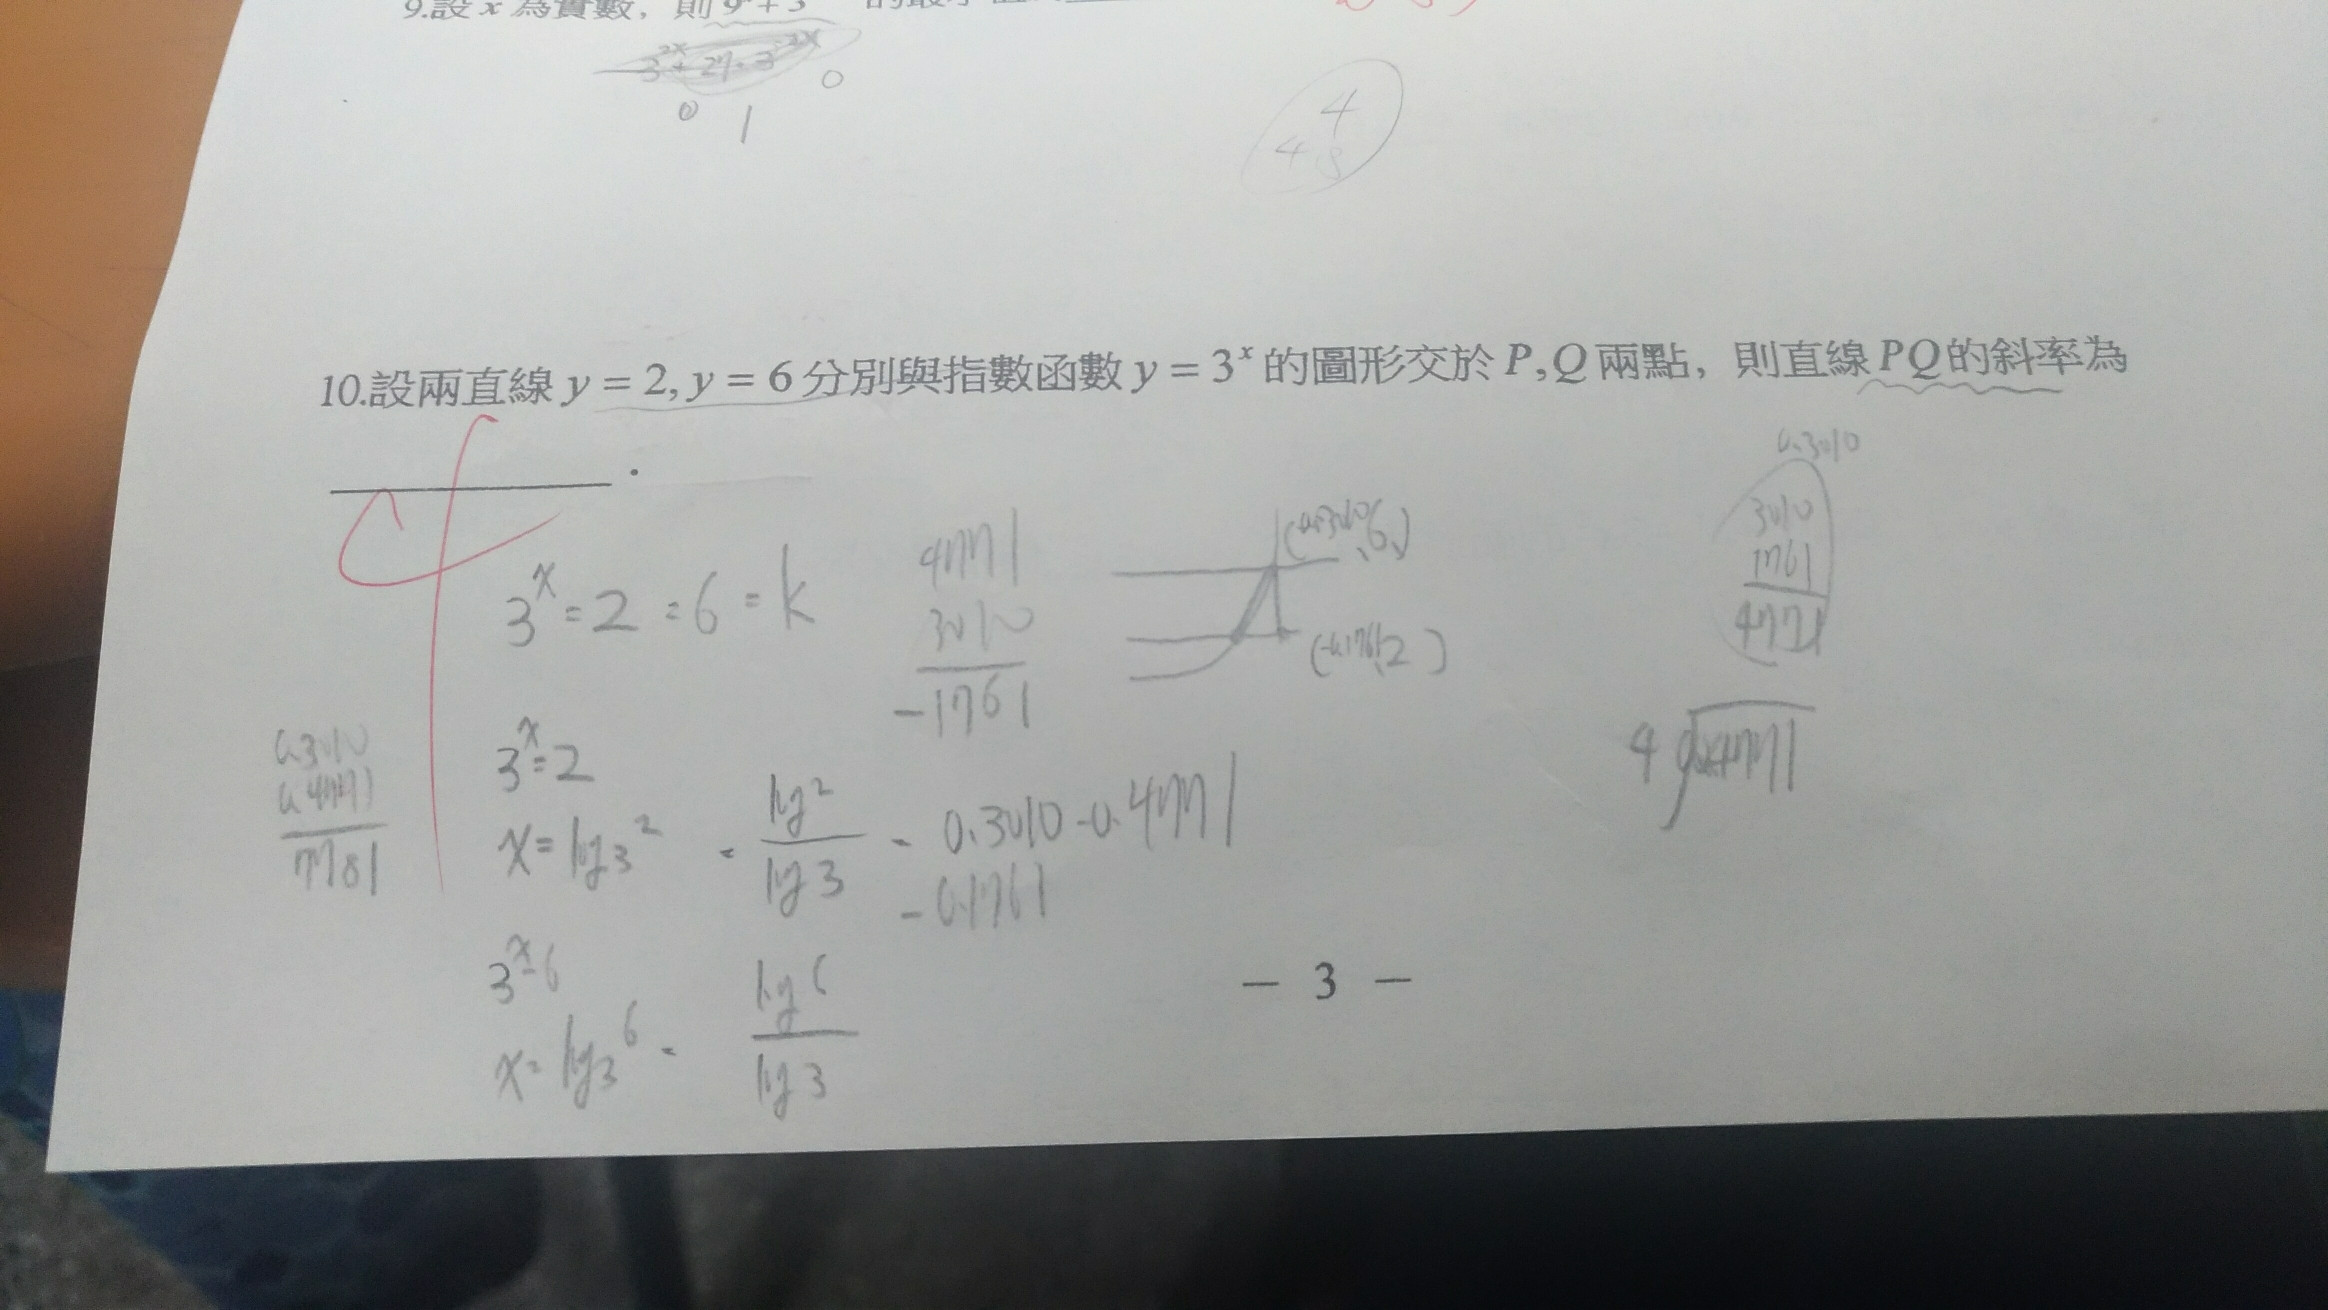 9.設 x 為實數，則 9ˣ + 3
3²ˣ + 27·3⁻²ˣ
0 1 0
4
4 8
10.設兩直線 y = 2, y = 6 分別與指數函數 y = 3ˣ 的圖形交於 P, Q 兩點，則直線 PQ 的斜率為
________.
3ˣ = 2 = 6 = k
4771
3010
-1761
(0.3010, 6)
(-0.1761, 2)
0.3010
3010
1761
4771
4 0.4771
0.3010
0.4771
7781
3ˣ = 2
x = log₃2 = log2/log3 = 0.3010 - 0.4771
-0.1761
3ˣ = 6
x = log₃6 = log6/log3
— 3 —